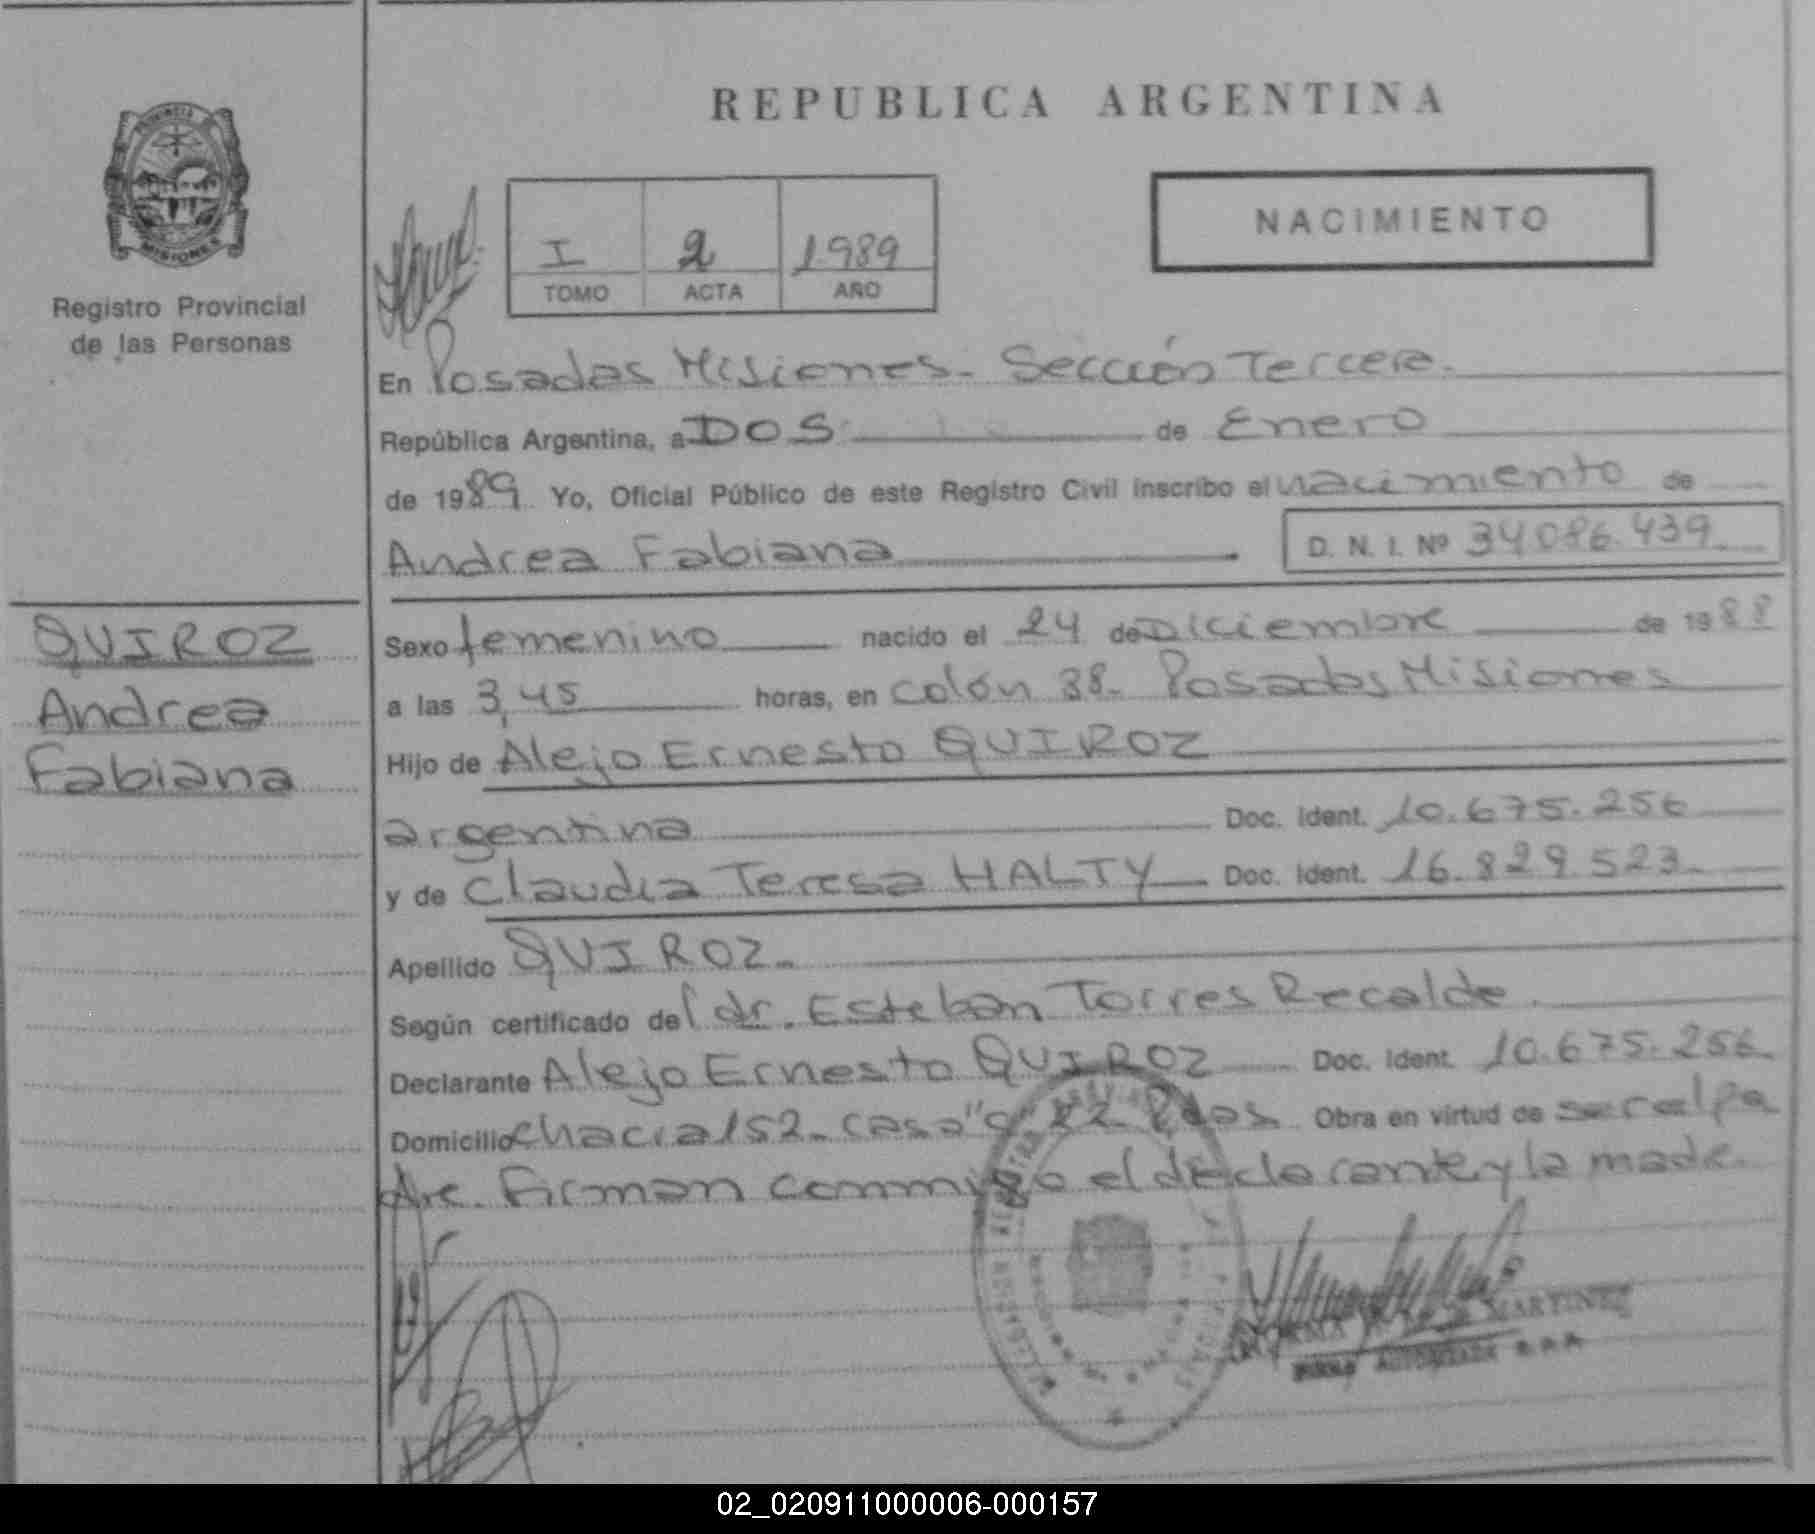 REPUBLICA ARGENTINA
PROVINCIA DE
MISIONES
Registro Provincial
de las Personas
NACIMIENTO
I 2 1989
TOMO ACTA AÑO
En Posadas Misiones. Sección Tercera.
República Argentina, a DOS de Enero
de 1989. Yo, Oficial Público de este Registro Civil inscribo el nacimiento de
Andrea Fabiana D. N. I. Nº 34086.439
QUIROZ
Andrea
Fabiana
Sexo femenino nacido el 24 de Diciembre de 1988
a las 3,45 horas, en Colón 38. Posadas Misiones
Hijo de Alejo Ernesto QUIROZ
argentina Doc. Ident. 10.675.256
y de Claudia Teresa HALTY Doc. Ident. 16.829.523.
Apellido QUIROZ.
Según certificado del dr. Esteban Torres Recalde.
Declarante Alejo Ernesto QUIROZ Doc. Ident. 10.675.256
Domicilio chacra 152. casa Pdas. Obra en virtud de ser el pa
dre. Firman conmigo el declarante y la madre.
MARTINEZ
FIRMA AUTORIZADA
02_020911000006-000157